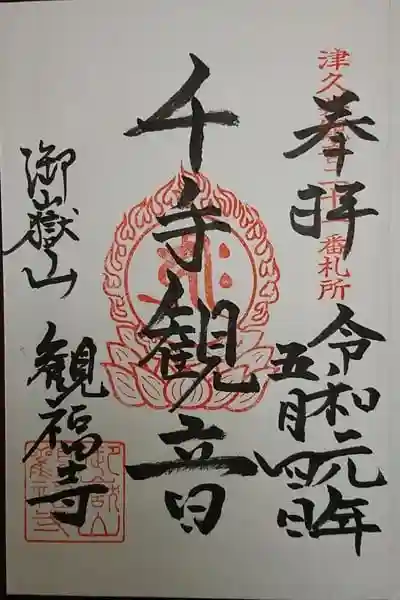 奉拝
令和元年
五月四日
千手観音
御嶽山
観福寺
津久
番札所